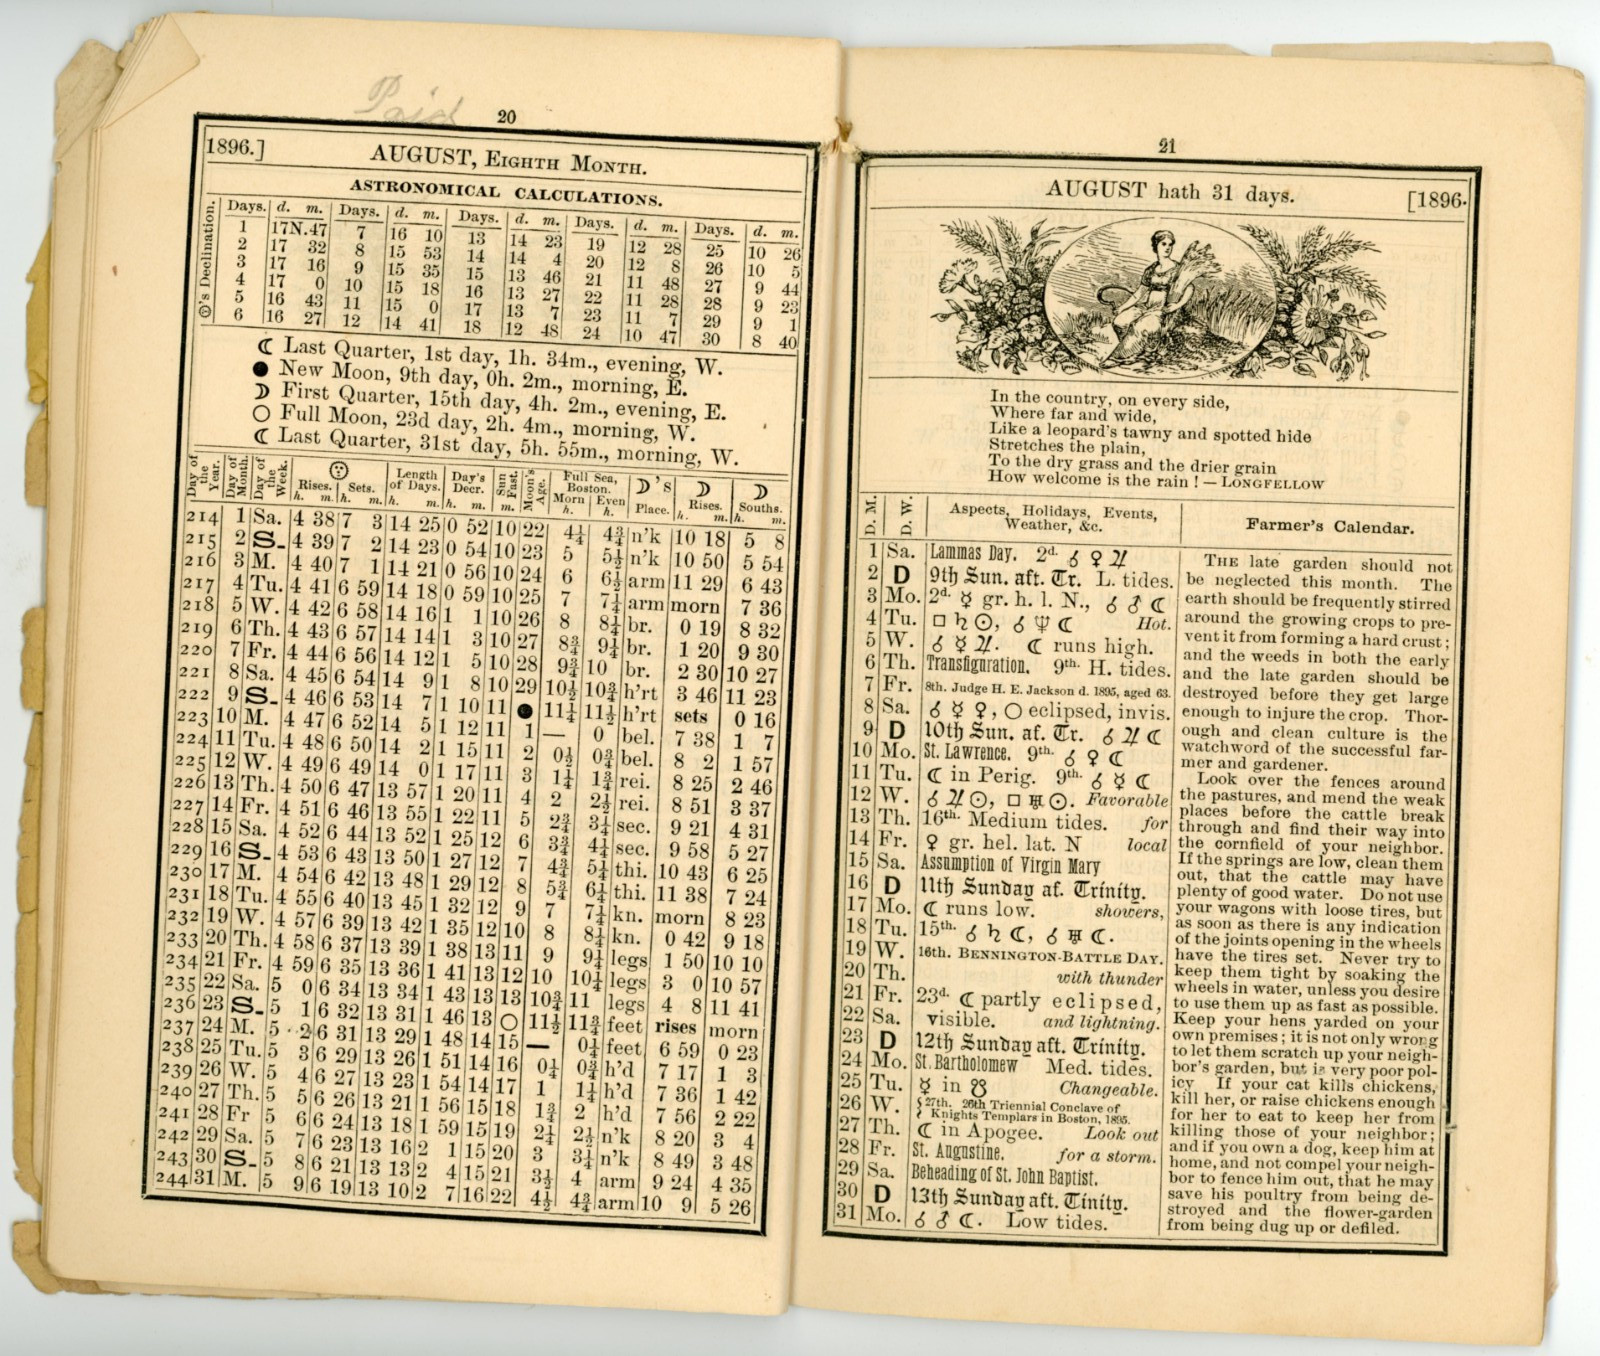 Paid
20
1896.] AUGUST, EIGHTH MONTH.
ASTRONOMICAL CALCULATIONS.
☉'s Declination.
Days. d. m. Days. d. m. Days. d. m. Days. d. m. Days. d. m.
1 17N.47 7 16 10 13 14 23 19 12 28 25 10 26
2 17 32 8 15 53 14 14 4 20 12 8 26 10 5
3 17 16 9 15 35 15 13 46 21 11 48 27 9 44
4 17 0 10 15 18 16 13 27 22 11 28 28 9 23
5 16 43 11 15 0 17 13 7 23 11 7 29 9 1
6 16 27 12 14 41 18 12 48 24 10 47 30 8 40
☾ Last Quarter, 1st day, 1h. 34m., evening, W.
● New Moon, 9th day, 0h. 2m., morning, E.
☽ First Quarter, 15th day, 4h. 2m., evening, E.
○ Full Moon, 23d day, 2h. 4m., morning, W.
☾ Last Quarter, 31st day, 5h. 55m., morning, W.
Day of the Year. Day of Month. Day of the Week. ☉ Rises. h. m. Sets. h. m. Length of Days. h. m. Day's Decr. h. m. Sun Fast. m. Moon's Age. Full Sea, Boston. Morn h. Even h. ☽'s Place. ☽ Rises. h. m. ☽ Souths. h. m.
214 1 Sa. 4 38 7 3 14 25 0 52 10 22 4¼ 4¾ n'k 10 18 5 8
215 2 S. 4 39 7 2 14 23 0 54 10 23 5 5½ n'k 10 50 5 54
216 3 M. 4 40 7 1 14 21 0 56 10 24 6 6½ arm 11 29 6 43
217 4 Tu. 4 41 6 59 14 18 0 59 10 25 7 7¼ arm morn 7 36
218 5 W. 4 42 6 58 14 16 1 1 10 26 8 8¼ br. 0 19 8 32
219 6 Th. 4 43 6 57 14 14 1 3 10 27 8¾ 9¼ br. 1 20 9 30
220 7 Fr. 4 44 6 56 14 12 1 5 10 28 9¾ 10 br. 2 30 10 27
221 8 Sa. 4 45 6 54 14 9 1 8 10 29 10½ 10¾ h'rt 3 46 11 23
222 9 S. 4 46 6 53 14 7 1 10 11 ● 11¼ 11½ h'rt sets 0 16
223 10 M. 4 47 6 52 14 5 1 12 11 1 — 0 bel. 7 38 1 7
224 11 Tu. 4 48 6 50 14 2 1 15 11 2 0½ 0¾ bel. 8 2 1 57
225 12 W. 4 49 6 49 14 0 1 17 11 3 1¼ 1¾ rei. 8 25 2 46
226 13 Th. 4 50 6 47 13 57 1 20 11 4 2 2½ rei. 8 51 3 37
227 14 Fr. 4 51 6 46 13 55 1 22 11 5 2¾ 3¼ sec. 9 21 4 31
228 15 Sa. 4 52 6 44 13 52 1 25 12 6 3¾ 4¼ sec. 9 58 5 27
229 16 S. 4 53 6 43 13 50 1 27 12 7 4¾ 5¼ thi. 10 43 6 25
230 17 M. 4 54 6 42 13 48 1 29 12 8 5¾ 6¼ thi. 11 38 7 24
231 18 Tu. 4 55 6 40 13 45 1 32 12 9 7 7¼ kn. morn 8 23
232 19 W. 4 57 6 39 13 42 1 35 12 10 8 8¼ kn. 0 42 9 18
233 20 Th. 4 58 6 37 13 39 1 38 13 11 9 9¼ legs 1 50 10 10
234 21 Fr. 4 59 6 35 13 36 1 41 13 12 10 10¼ legs 3 0 10 57
235 22 Sa. 5 0 6 34 13 34 1 43 13 13 10¾ 11 legs 4 8 11 41
236 23 S. 5 1 6 32 13 31 1 46 13 ○ 11½ 11¾ feet rises morn
237 24 M. 5 2 6 31 13 29 1 48 14 15 — 0¼ feet 6 59 0 23
238 25 Tu. 5 3 6 29 13 26 1 51 14 16 0¼ 0¾ h'd 7 17 1 3
239 26 W. 5 4 6 27 13 23 1 54 14 17 1 1¼ h'd 7 36 1 42
240 27 Th. 5 5 6 26 13 21 1 56 15 18 1¾ 2 h'd 7 56 2 22
241 28 Fr 5 6 6 24 13 18 1 59 15 19 2¼ 2½ n'k 8 20 3 4
242 29 Sa. 5 7 6 23 13 16 2 1 15 20 3 3¼ n'k 8 49 3 48
243 30 S. 5 8 6 21 13 13 2 4 15 21 3½ 4 arm 9 24 4 35
244 31 M. 5 9 6 19 13 10 2 7 16 22 4½ 4¾ arm 10 9 5 26
21
AUGUST hath 31 days. [1896.
In the country, on every side,
Where far and wide,
Like a leopard's tawny and spotted hide
Stretches the plain,
To the dry grass and the drier grain
How welcome is the rain ! — LONGFELLOW
D. M. D. W. Aspects, Holidays, Events, Weather, &c.
1 Sa. Lammas Day. 2d. ☌ ♀ ♃
2 D 9th Sun. aft. Tr. L. tides.
3 Mo. 2d. ☿ gr. h. l. N., ☌ ♂ ☾
4 Tu. □ ♄ ☉, ☌ ♆ ☾ Hot.
5 W. ☌ ☿ ♃. ☾ runs high.
6 Th. Transfiguration. 9th. H. tides.
7 Fr. 8th. Judge H. E. Jackson d. 1895, aged 63.
8 Sa. ☌ ☿ ♀, ○ eclipsed, invis.
9 D 10th Sun. af. Tr. ☌ ♃ ☾
10 Mo. St. Lawrence. 9th. ☌ ♀ ☾
11 Tu. ☾ in Perig. 9th. ☌ ☿ ☾
12 W. ☌ ♃ ☉, □ ♅ ☉. Favorable
13 Th. 16th. Medium tides. for
14 Fr. ♀ gr. hel. lat. N local
15 Sa. Assumption of Virgin Mary
16 D 11th Sunday af. Trinity.
17 Mo. ☾ runs low. showers,
18 Tu. 15th. ☌ ♄ ☾, ☌ ♅ ☾.
19 W. 16th. BENNINGTON-BATTLE DAY.
20 Th. with thunder
21 Fr. 23d. ☾ partly eclipsed,
22 Sa. visible. and lightning.
23 D 12th Sunday aft. Trinity.
24 Mo. St. Bartholomew Med. tides.
25 Tu. ☿ in ☋ Changeable.
26 W. 27th. 26th Triennial Conclave of
Knights Templars in Boston, 1895.
27 Th. ☾ in Apogee. Look out
28 Fr. St. Augustine. for a storm.
29 Sa. Beheading of St. John Baptist.
30 D 13th Sunday aft. Tinity.
31 Mo. ☌ ♂ ☾. Low tides.
Farmer's Calendar.
THE late garden should not
be neglected this month. The
earth should be frequently stirred
around the growing crops to pre-
vent it from forming a hard crust;
and the weeds in both the early
and the late garden should be
destroyed before they get large
enough to injure the crop. Thor-
ough and clean culture is the
watchword of the successful far-
mer and gardener.
Look over the fences around
the pastures, and mend the weak
places before the cattle break
through and find their way into
the cornfield of your neighbor.
If the springs are low, clean them
out, that the cattle may have
plenty of good water. Do not use
your wagons with loose tires, but
as soon as there is any indication
of the joints opening in the wheels
have the tires set. Never try to
keep them tight by soaking the
wheels in water, unless you desire
to use them up as fast as possible.
Keep your hens yarded on your
own premises; it is not only wrong
to let them scratch up your neigh-
bor's garden, but is very poor pol-
icy If your cat kills chickens,
kill her, or raise chickens enough
for her to eat to keep her from
killing those of your neighbor;
and if you own a dog, keep him at
home, and not compel your neigh-
bor to fence him out, that he may
save his poultry from being de-
stroyed and the flower-garden
from being dug up or defiled.